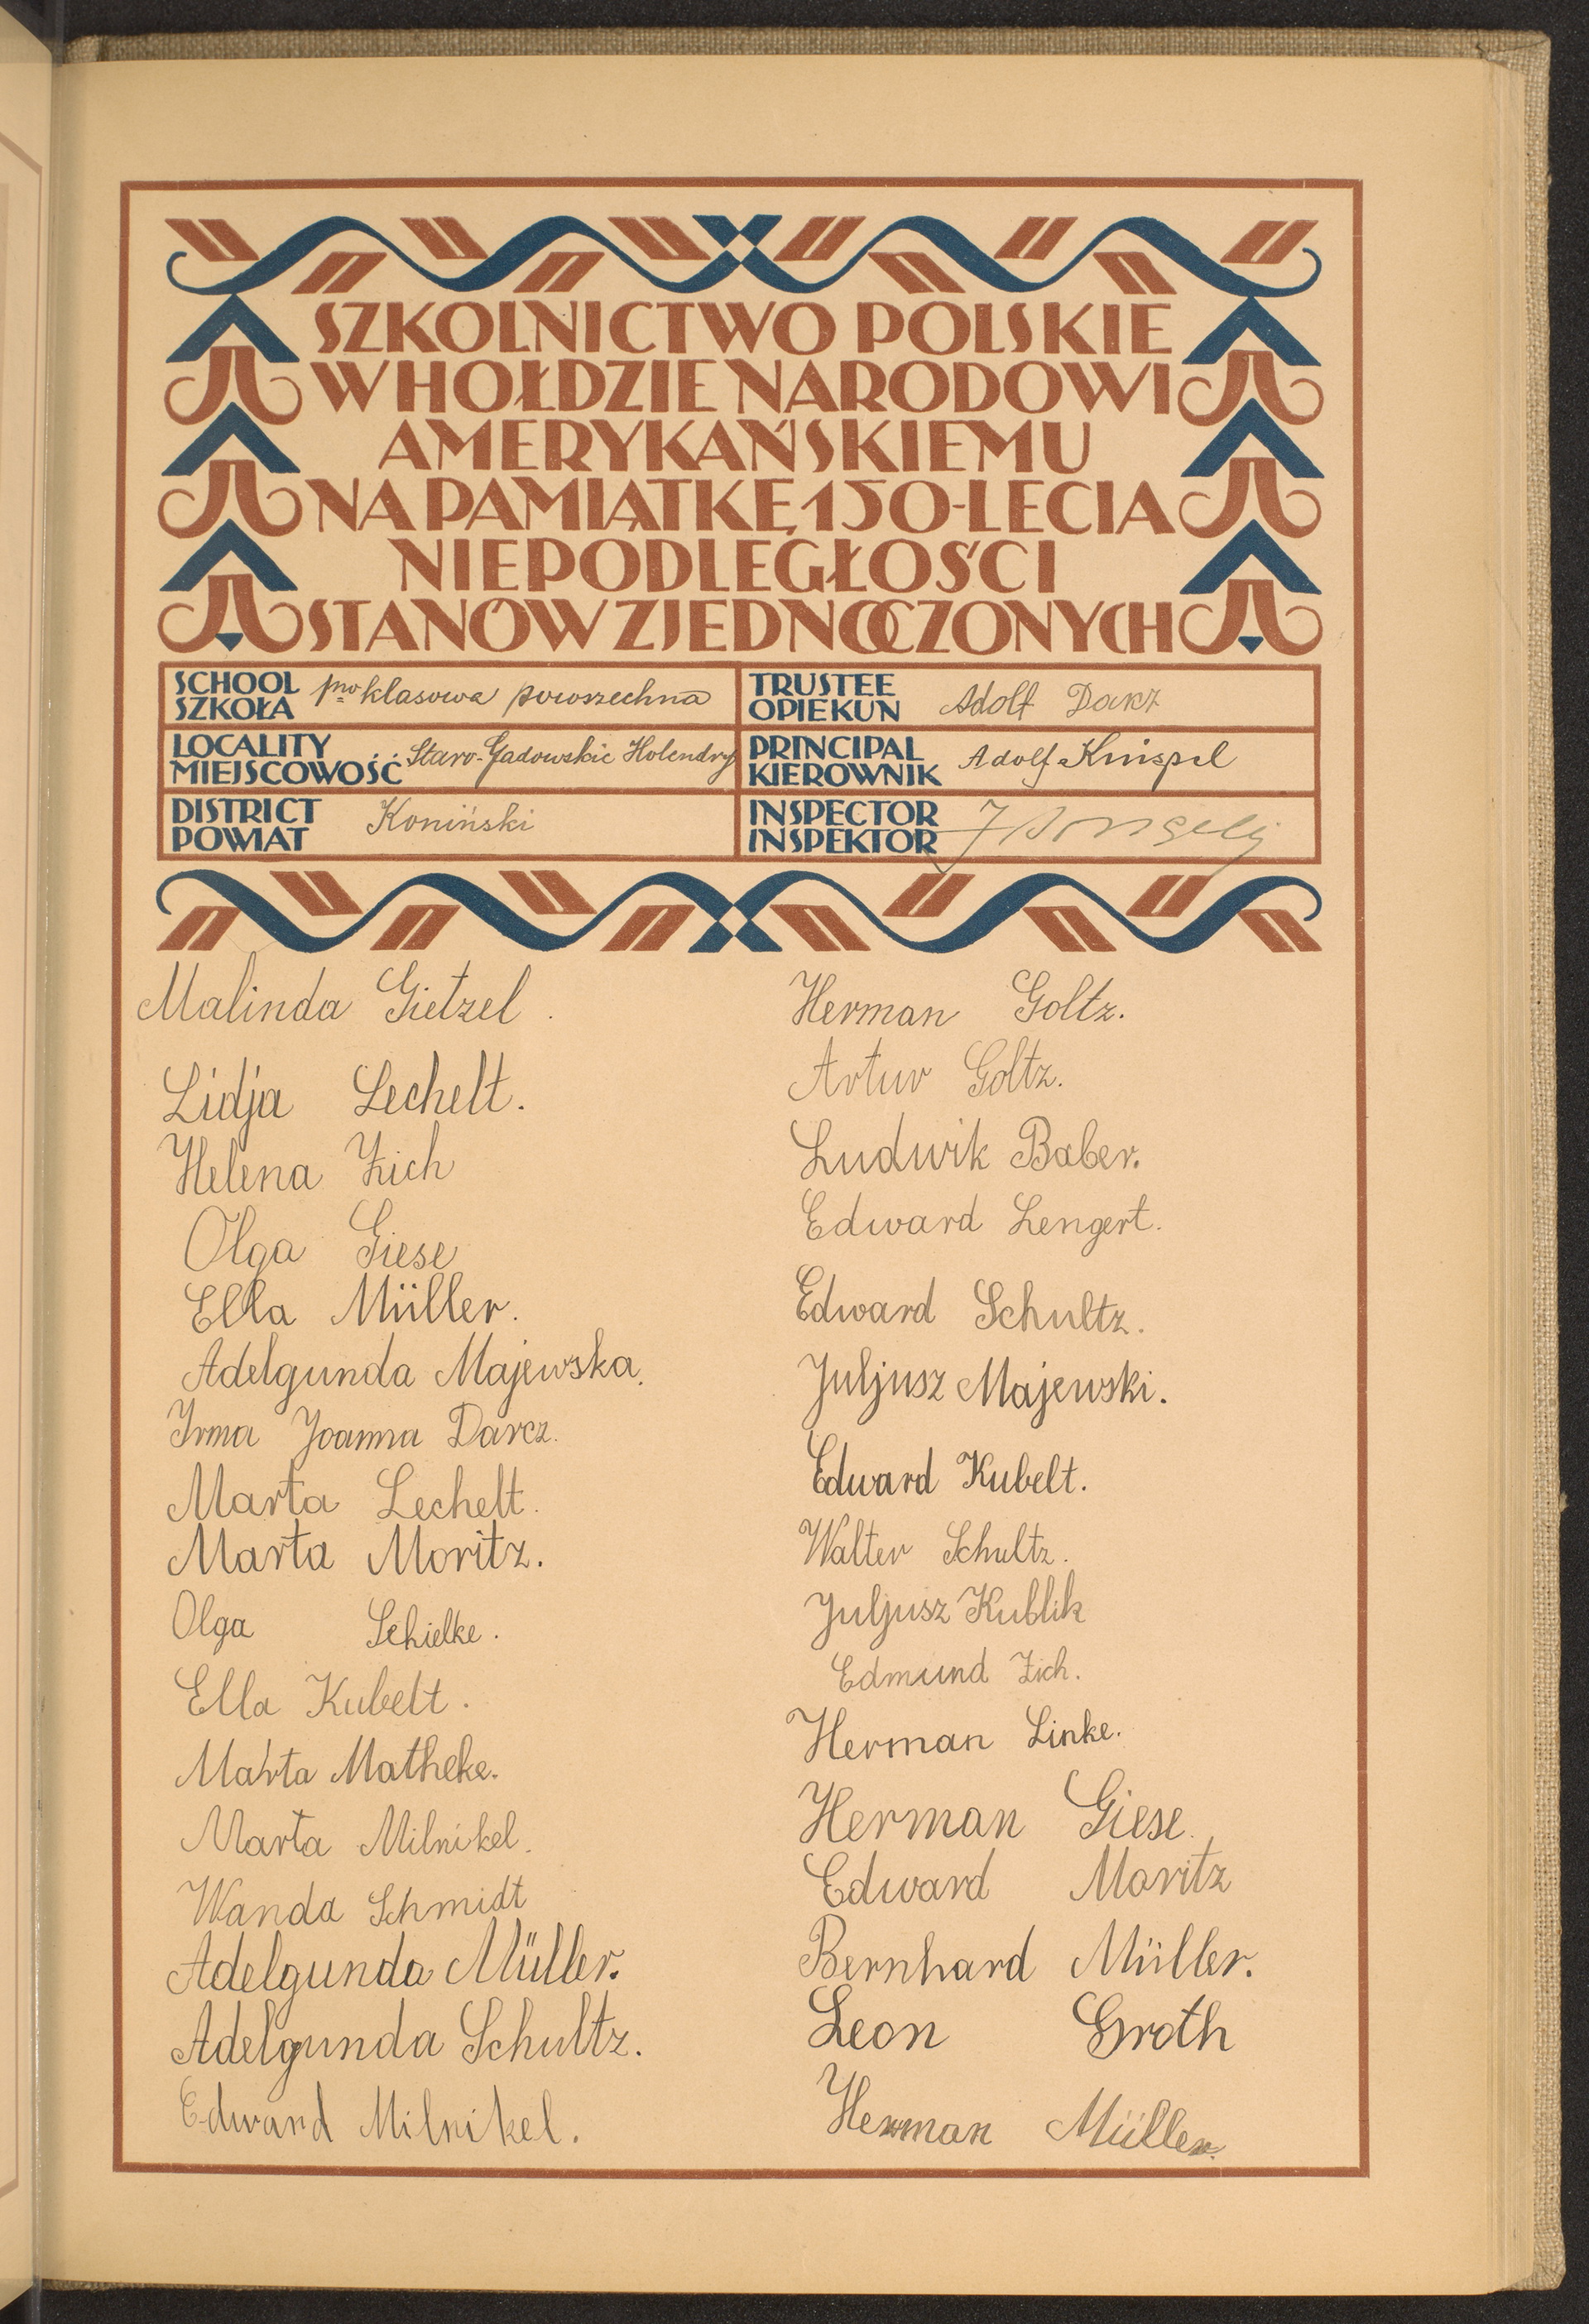 SZKOLNICTWO POLSKIE
W HOŁDZIE NARODOWI
AMERYKAŃSKIEMU
NA PAMIĄTKĘ 150-LECIA
NIEPODLEGŁOŚCI
STANÓW ZJEDNOCZONYCH
SCHOOL
SZKOŁA
klasowa powszechna
TRUSTEE
OPIEKUN
Adolf Darz
LOCALITY
MIEJSCOWOŚĆ
Staro-Gadowskie Holendry
PRINCIPAL
KIEROWNIK
Adolf Knispel
DISTRICT
POWIAT
Koniński
INSPECTOR
INSPEKTOR
Malinda Gietzel.
Lidja Lechelt.
Helena Zich
Olga Giese
Ella Müller.
Adelgunda Majewska.
Irma Joanna Darcz.
Marta Lechelt.
Marta Moritz.
Olga Schielke.
Ella Kubelt.
Marta Matheke.
Marta Milnikel.
Wanda Schmidt
Adelgunda Müller.
Adelgunda Schultz.
Edward Milnikel.
Herman Goltz.
Artur Goltz.
Ludwik Baber.
Edward Lengert.
Edward Schultz.
Juljusz Majewski.
Edward Kubelt.
Walter Schultz.
Juljusz Kublik
Edmund Zich.
Herman Linke.
Herman Giese.
Edward Moritz
Bernhard Müller.
Leon Groth
Herman Müller.